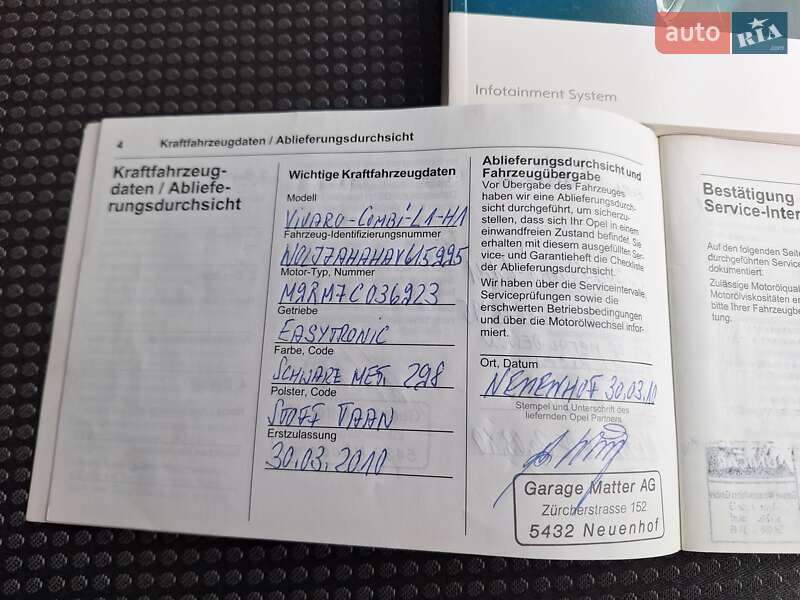 auto RIA
.com
Infotainment System
4 Kraftfahrzeugdaten / Ablieferungsdurchsicht
Kraftfahrzeug-
daten / Abliefe-
rungsdurchsicht
Wichtige Kraftfahrzeugdaten
Modell
VIVARO-COMBI-L1-H1
Fahrzeug-Identifizierungsnummer
W0LJ7AHAHAV615995
Motor-Typ, Nummer
M9RM7C036923
Getriebe
EASYTRONIC
Farbe, Code
SCHWARZ MET. 298
Polster, Code
STOFF TAAN
Erstzulassung
30.03.2010
Ablieferungsdurchsicht und
Fahrzeugübergabe
Vor Übergabe des Fahrzeuges
haben wir eine Ablieferungsdurch-
sicht durchgeführt, um sicherzu-
stellen, dass sich Ihr Opel in einem
einwandfreien Zustand befindet. Sie
erhalten mit diesem ausgefüllten Ser-
vice- und Garantieheft die Checkliste
der Ablieferungsdurchsicht.
Wir haben über die Serviceintervalle,
Serviceprüfungen sowie die
erschwerten Betriebsbedingungen
und über die Motorölwechsel infor-
miert.
Ort, Datum
NEUENHOF 30.03.10
Stempel und Unterschrift des
liefernden Opel Partners
Garage Matter AG
Zürcherstrasse 152
5432 Neuenhof
Bestätigung
Service-Inter
Auf den folgenden Seite
durchgeführten Service
dokumentiert.
Zulässige Motorölqual
Motorölviskositäten er
bitte Ihrer Fahrzeugbe
tung.